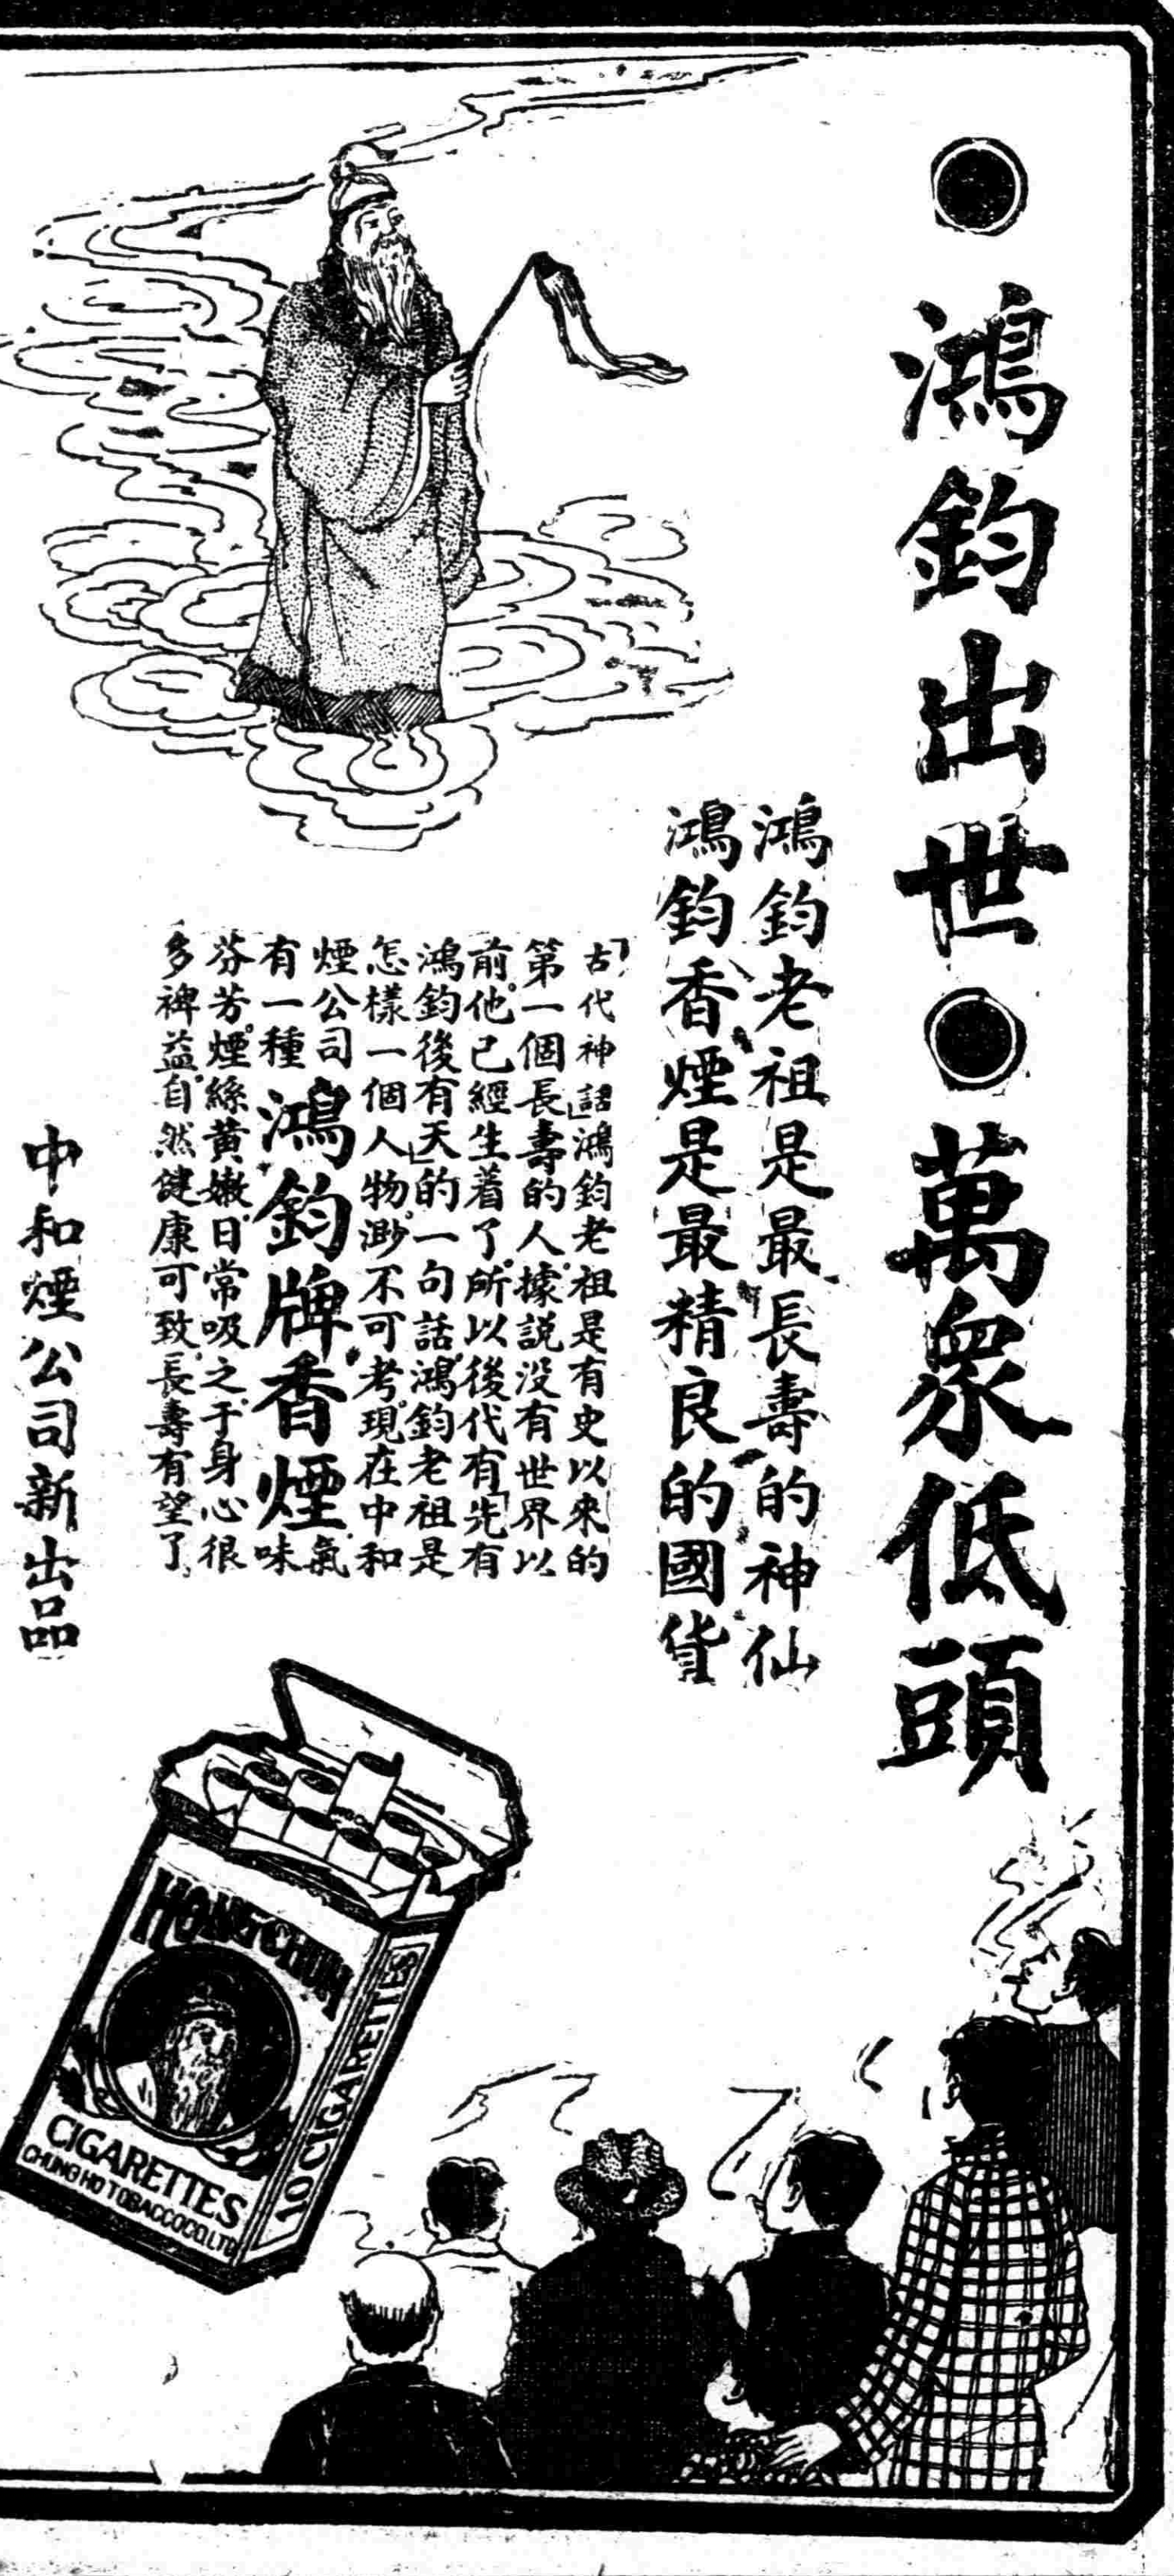 ●鴻鈞出世●萬衆低頭
鴻鈞老祖是最長壽的神仙
鴻鈞香煙是最精良的國貨
「古代神話」鴻鈞老祖是有史以來的
第一個長壽的人。據説没有世界以
前。他已經生着了。所以後代有「先有
鴻鈞後有天」的一句話。鴻鈞老祖是
怎樣一個人物。渺不可考。現在中和
煙公司
有一種鴻鈞牌香煙氣味
芬芳。煙絲黄嫩。日常吸之。于身心很
多裨益。自然健康可致。長壽有望了。
中和煙公司新出品
HONGCHUN
CIGARETTES
CHUNG HO TOBACCO CO. LTD
10 CIGARETTES